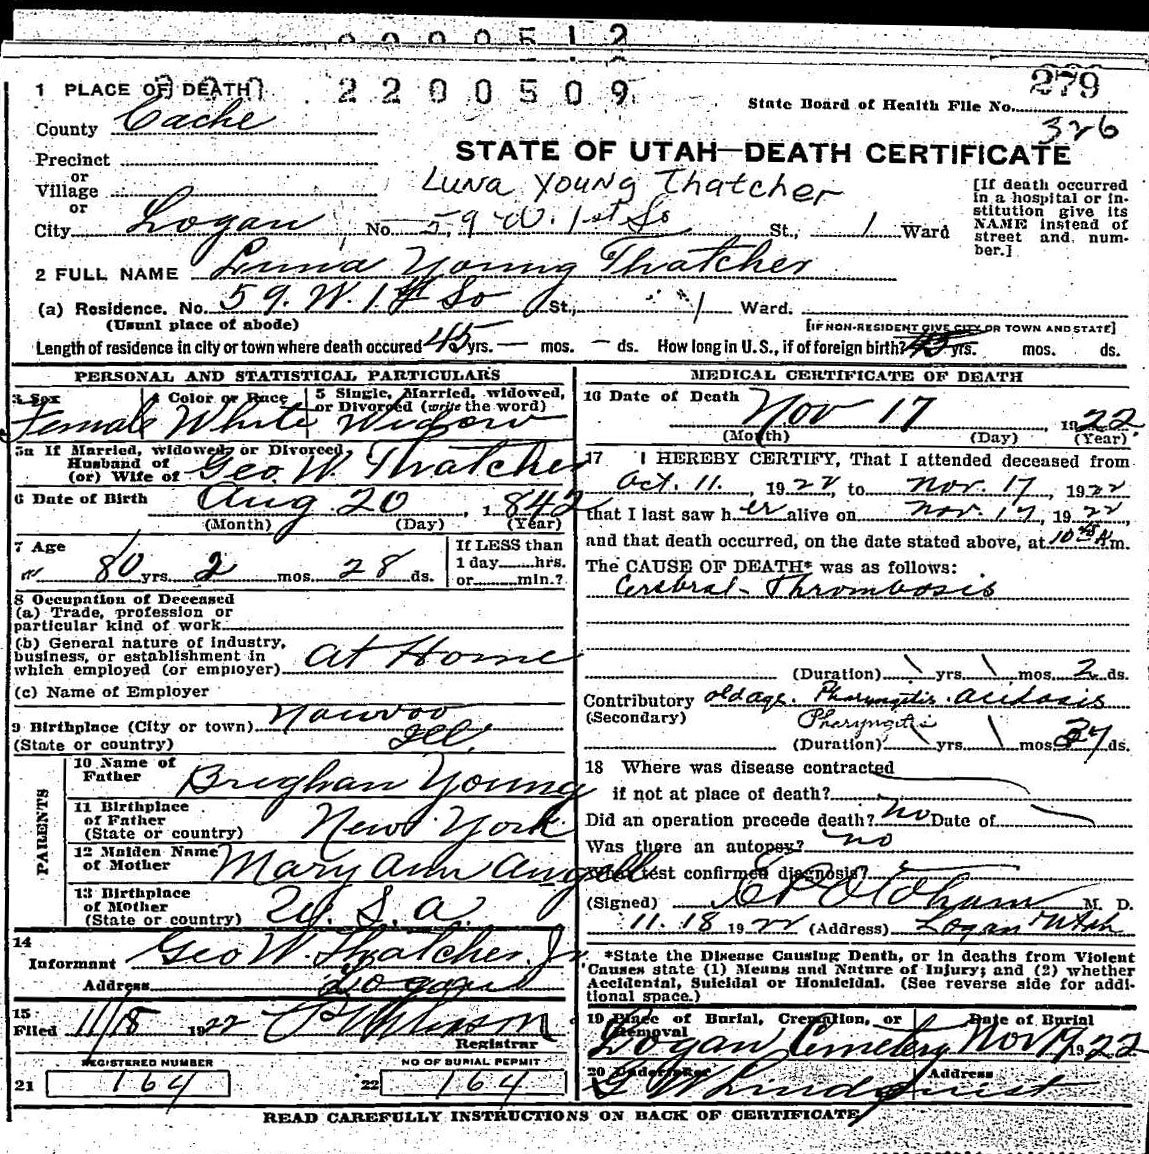 2200512
279
1 PLACE OF DEATH
2200509
State Board of Health File No.
326
County Cache
STATE OF UTAH—DEATH CERTIFICATE
Precinct
or
Village
or
Luna Young Thatcher
[If death occurred in a hospital or institution give its NAME instead of street and number.]
City Logan No. 59 W. 1st So St., 1 Ward
2 FULL NAME Luna Young Thatcher
(a) Residence. No. 59. W. 1st So St., 1 Ward.
(Usual place of abode)
[IF NON-RESIDENT GIVE CITY OR TOWN AND STATE]
Length of residence in city or town where death occured 45 yrs. — mos. — ds. How long in U.S., if of foreign birth? 45 yrs. mos. ds.
PERSONAL AND STATISTICAL PARTICULARS
3 Sex 4 Color or Race 5 Single, Married, widowed, or Divorced (write the word)
Female White Widow
5a If Married, widowed or Divorced
Husband of
(or) Wife of Geo. W. Thatcher
6 Date of Birth Aug 20, 1842
(Month) (Day) (Year)
7 Age
80 yrs. 2 mos. 28 ds.
If LESS than
1 day......hrs.
or......min.?
8 Occupation of Deceased
(a) Trade, profession or
particular kind of work
(b) General nature of industry,
business, or establishment in
which employed (or employer) At Home
(c) Name of Employer
9 Birthplace (City or town) Nauvoo
(State or country) Ill.
PARENTS
10 Name of
Father Brighan Young
11 Birthplace
of Father
(State or country) New York
12 Maiden Name
of Mother Mary Ann Angell
13 Birthplace
of Mother
(State or country) U. S. A.
14
Informant Geo W. Thatcher Jr.
Address Logan
15
Filed 11/18 1922
Registrar
REGISTERED NUMBER
21 164
NO OF BURIAL PERMIT
22 164
MEDICAL CERTIFICATE OF DEATH
16 Date of Death
Nov 17, 1922
(Month) (Day) (Year)
17 I HEREBY CERTIFY, That I attended deceased from
Oct. 11, 1922, to Nov. 17, 1922
that I last saw her alive on Nov. 17, 1922,
and that death occurred, on the date stated above, at 10 45 A.m.
The CAUSE OF DEATH* was as follows:
Cerebral Thrombosis
(Duration) \ yrs. \ mos. 2 ds.
Contributory old age. Pharyngitis. acidosis
(Secondary) Pharyngitis
(Duration) \ yrs. \ mos. 37 ds.
18 Where was disease contracted
if not at place of death?
Did an operation precede death? no Date of
Was there an autopsy? no
What test confirmed diagnosis?
(Signed) M. D.
11. 18 1922 (Address) Logan Utah
*State the Disease Causing Death, or in deaths from Violent
Causes state (1) Means and Nature of Injury; and (2) whether
Accidental, Suicidal or Homicidal. (See reverse side for addi-
tional space.)
19 Place of Burial, Cremation, or Removal Date of Burial
Logan Cemetery Nov 19 1922
20 Undertaker Address
READ CAREFULLY INSTRUCTIONS ON BACK OF CERTIFICATE